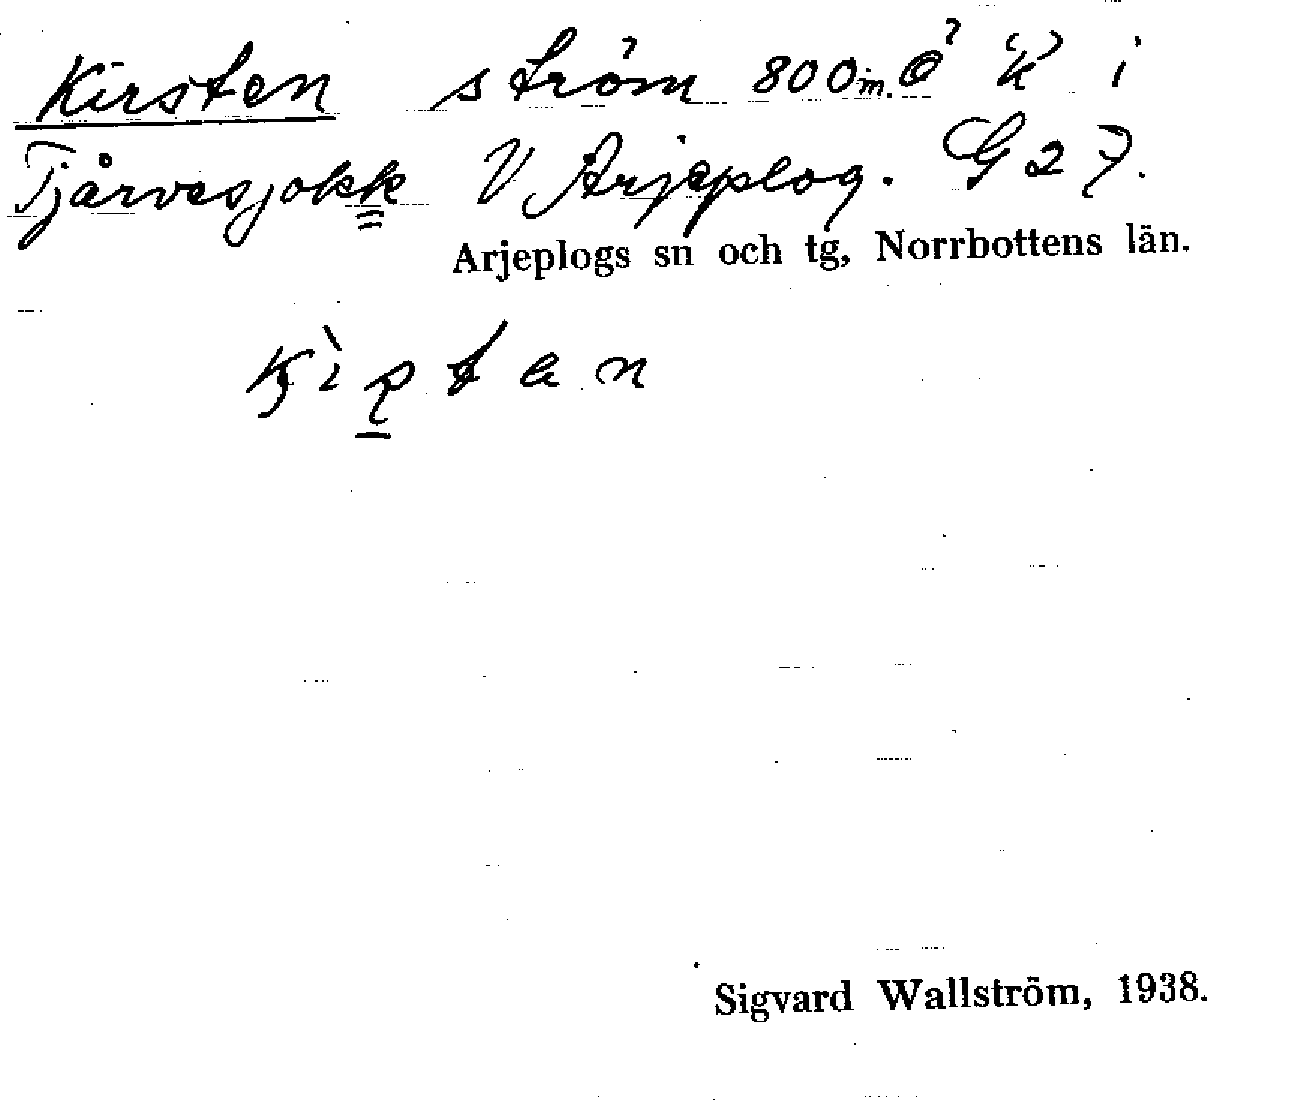 Kirsten ström 800 m. Ö 'K' i
Tjårvesjokk V Arjeplog. G 27.
Arjeplogs sn och tg, Norrbottens län.
Sigvard Wallström, 1938.